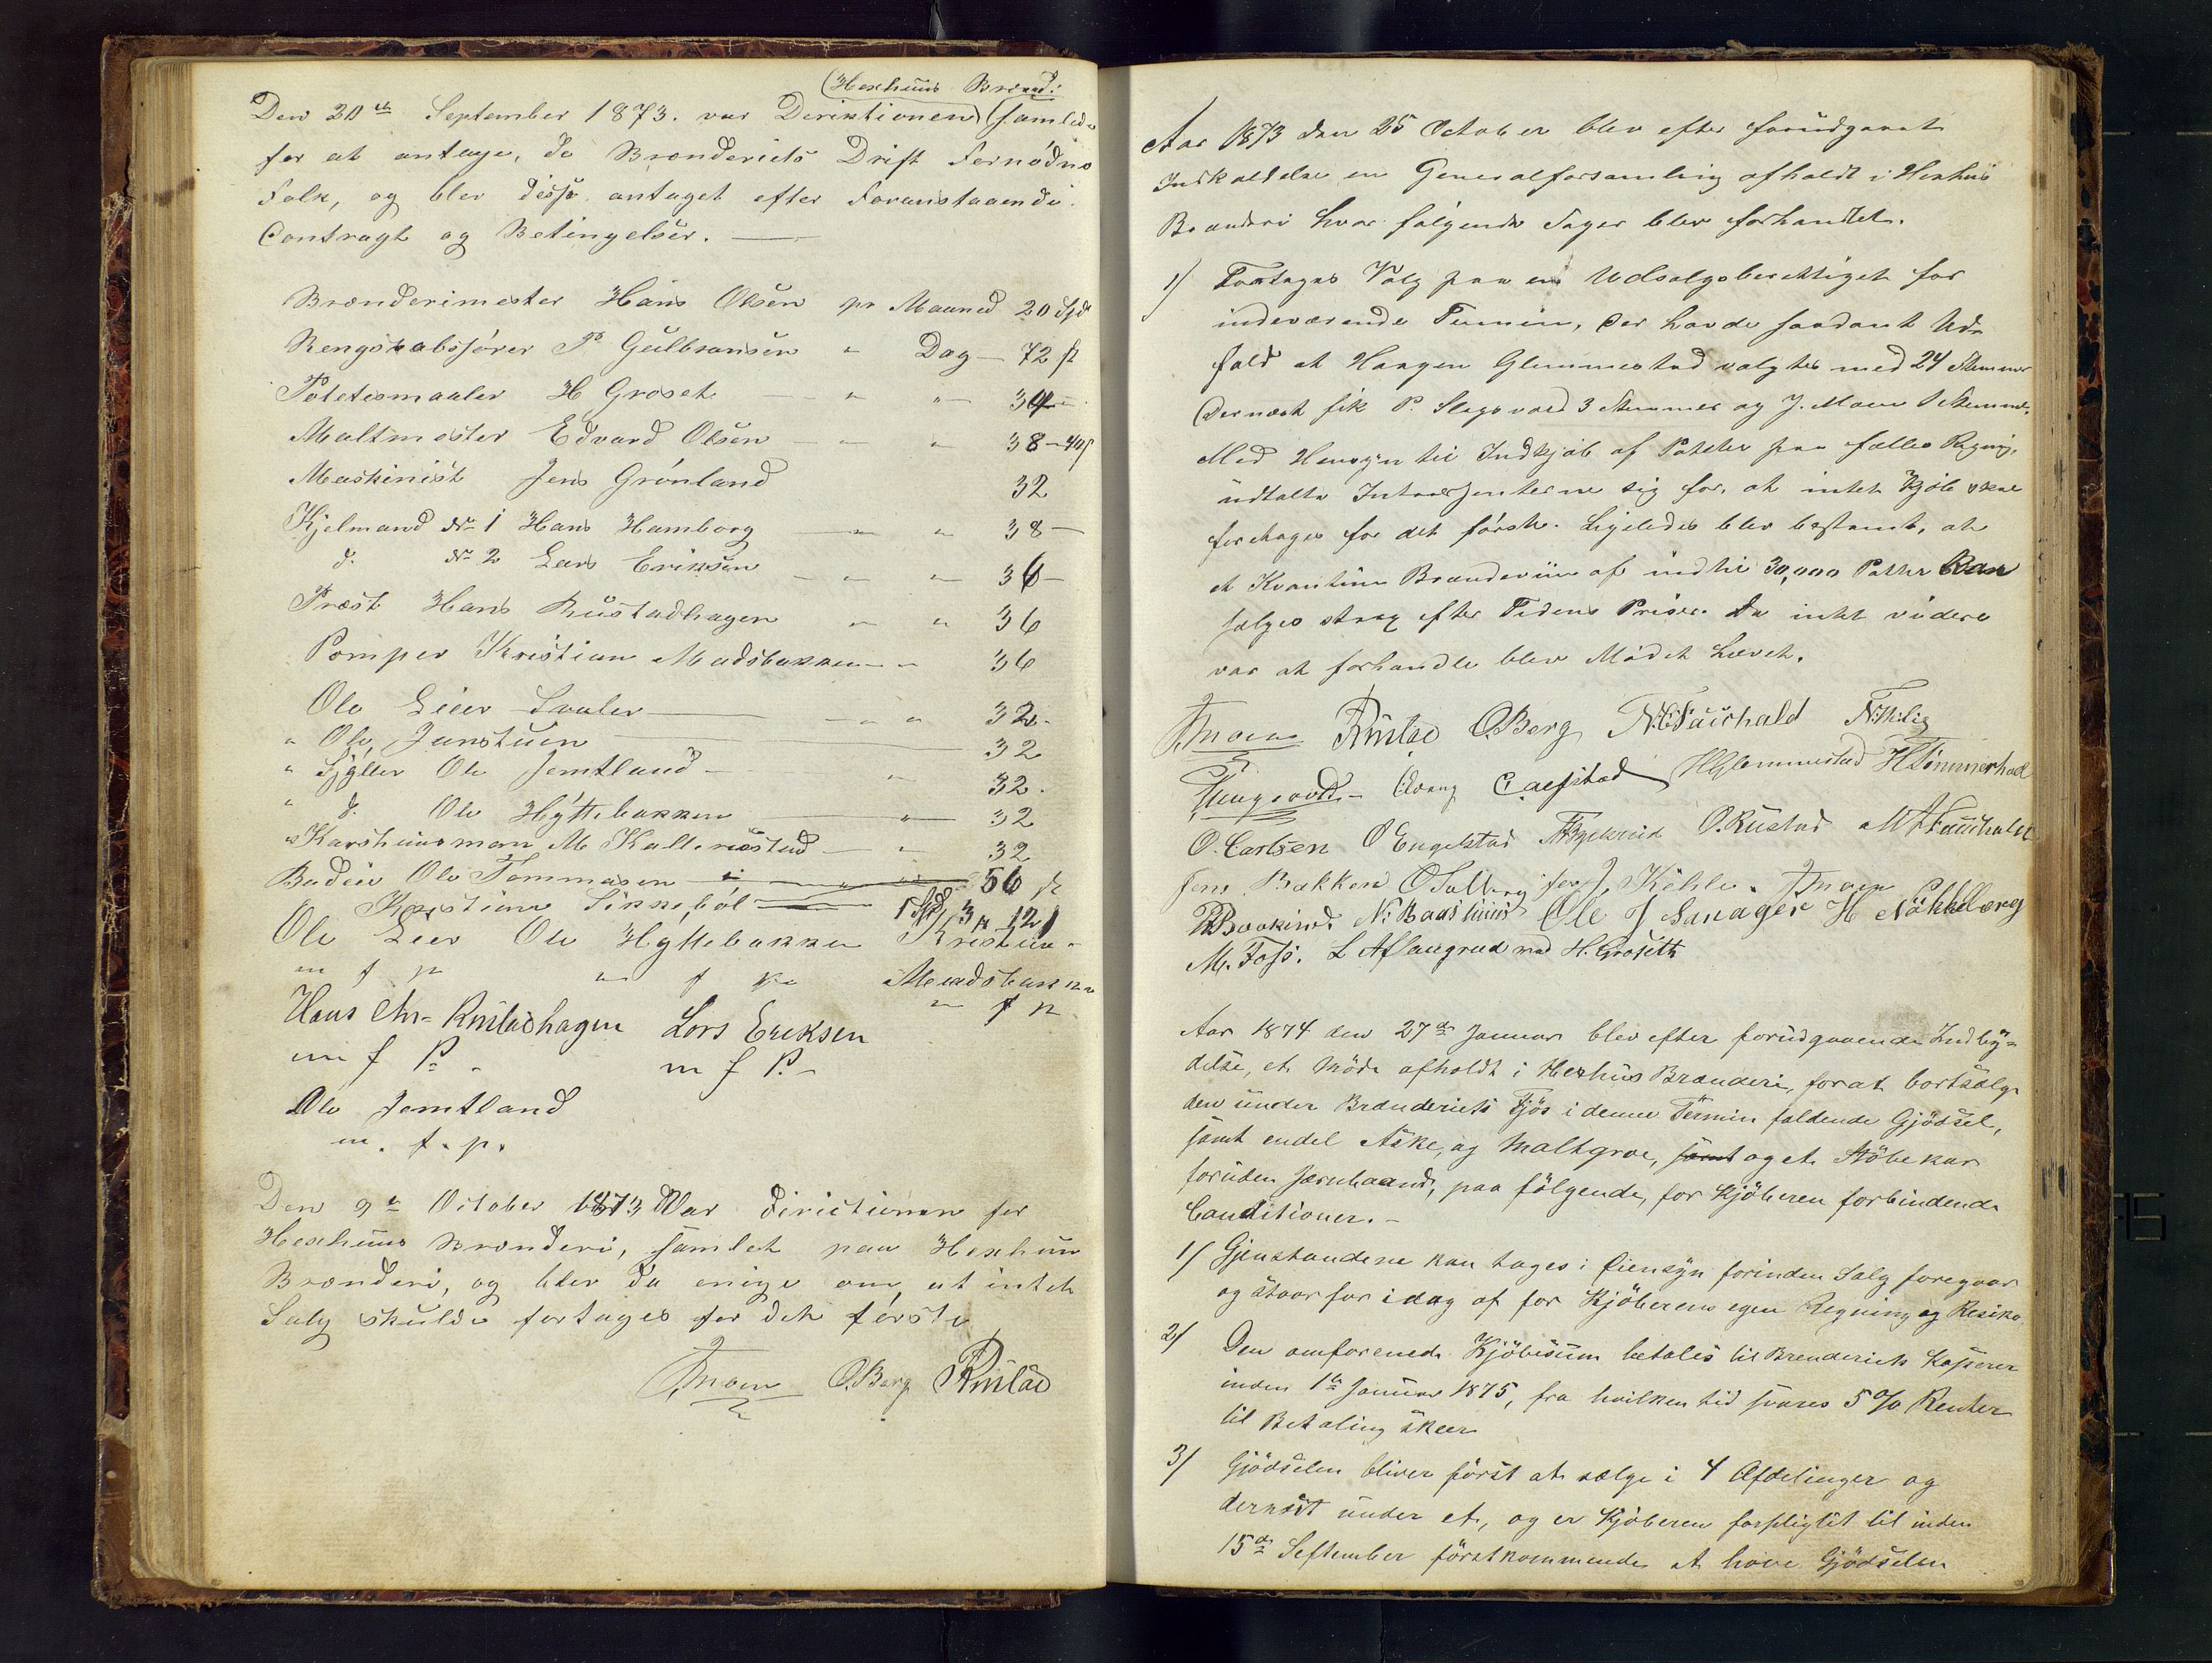 (Hexhuus Brænd:
Den 20de September 1873. var Deriktionen samled
for at antage, de Brænderiets Drift Fornødne
Folk, og blev disse antaget efter Foranstaaende
Contragt og Betingelser. —
Brænderimester Hans Olsen pr Maaned 20 Spd
Rengskabsfører P Gulbransen " Dag — 72 sk
Potetesmaaler H Groset " " 34
Maltmester Edvard Olsen — " 38
Maskinist Jens Grönland 32
Kjelmand No 1 Hans Hamborg — " 38 —
d. No 2 Lars Eriksen — " — 36 —
Præst Hans Rustadhagen " " 36
Pomper Kristian Madsbakken — " 36
Ole Leier Svaler — " " 32 -
" Ole, Junstuen 32
" Ole Jemtland — " 32.
" d. Ole Hÿttebakken — " — 32
" M — " 32
Budeie Ole Tommasen 56 sk
Ole Leier Ole Hyttebakken Kristian
m f p " f p Madsbakken
Hans Chr- Rustadhagen Lars Ericksen " f p
m f P. m f P. -
Ole Jemtland
m. f. p.
Den 9de October 1873 Var Dirictionen for
Hexhuus Brænderi, samlet paa Hexhuus
Brænderi, og blev da enige om, at intet
Salg skulde fortages for det første
O.Berg Rustad
Aar 1873 den 25 October blev efter forudgaaet
Indkaldelse en Generalforsamling afholdt i Hexhus
Brænderi hvor følgende Sager blev forhandlet.
1) Foretages Valg paa en Udsalgsberettiget for
indeværende Termin, Der havde saadant Ud-
fald at Haagen Glemmestad valgtes med 24 Stemmer
Dernæst fik P. Slagsvold 3 Stemmer og J. Moen 1 Stemme.
Med Hensyn til Indkjøb af Poteter paa fælles Regning,
udtalte Interessenterne sig for, at intet Kjøb skal
foretages for det første. Ligeledes blev bestemt, at
et Kvantum Brændeviin af indtil 30,000 Potter kan
sælges strax efter Tidens Priser. Da intet videre
var at forhandle blev Mødet hævet.
Rustad O.Berg N.C.Fauchald
H Glemmestad H Tømmerhol
O. Carlsen O Engelstad O. Rustad M A Fauchald
Jens Bakken for J. Köhler.
Ole J H Nökkleberg
M. Foss. med H. Grosett
Aar 1874 den 27de Januar blev efter forudgaaende Indby-
delse, et Møde afholdt i Hexhus Brænderi, for at bortsælge
den under Brænderiets Fjøs i denne Termin faldende Gjødsel,
samt endel Aske, og Maltgroe, samt og et Støbekar
foruden Jernbaand, paa følgende, for Kjøberen forbindende
Conditioner. -
1/ Gjenstandene kan tages i Øiensÿn forinden Salg foregaar
og staar for idag af for Kjøberens egen Regning og Resiko
2/ Den omforenede Kjøbesum betales til Brænderiets Kasserer
inden 1ste Januar 1875, fra hvilken tid svares 5 % Renter
til Betaling skeer
3/ Gjødselen bliver først at sælge i 4 Afdelinger og
dernæst under et, og er Kjøberen forpligtet til inden
15de September førstkommende at have Gjødselen